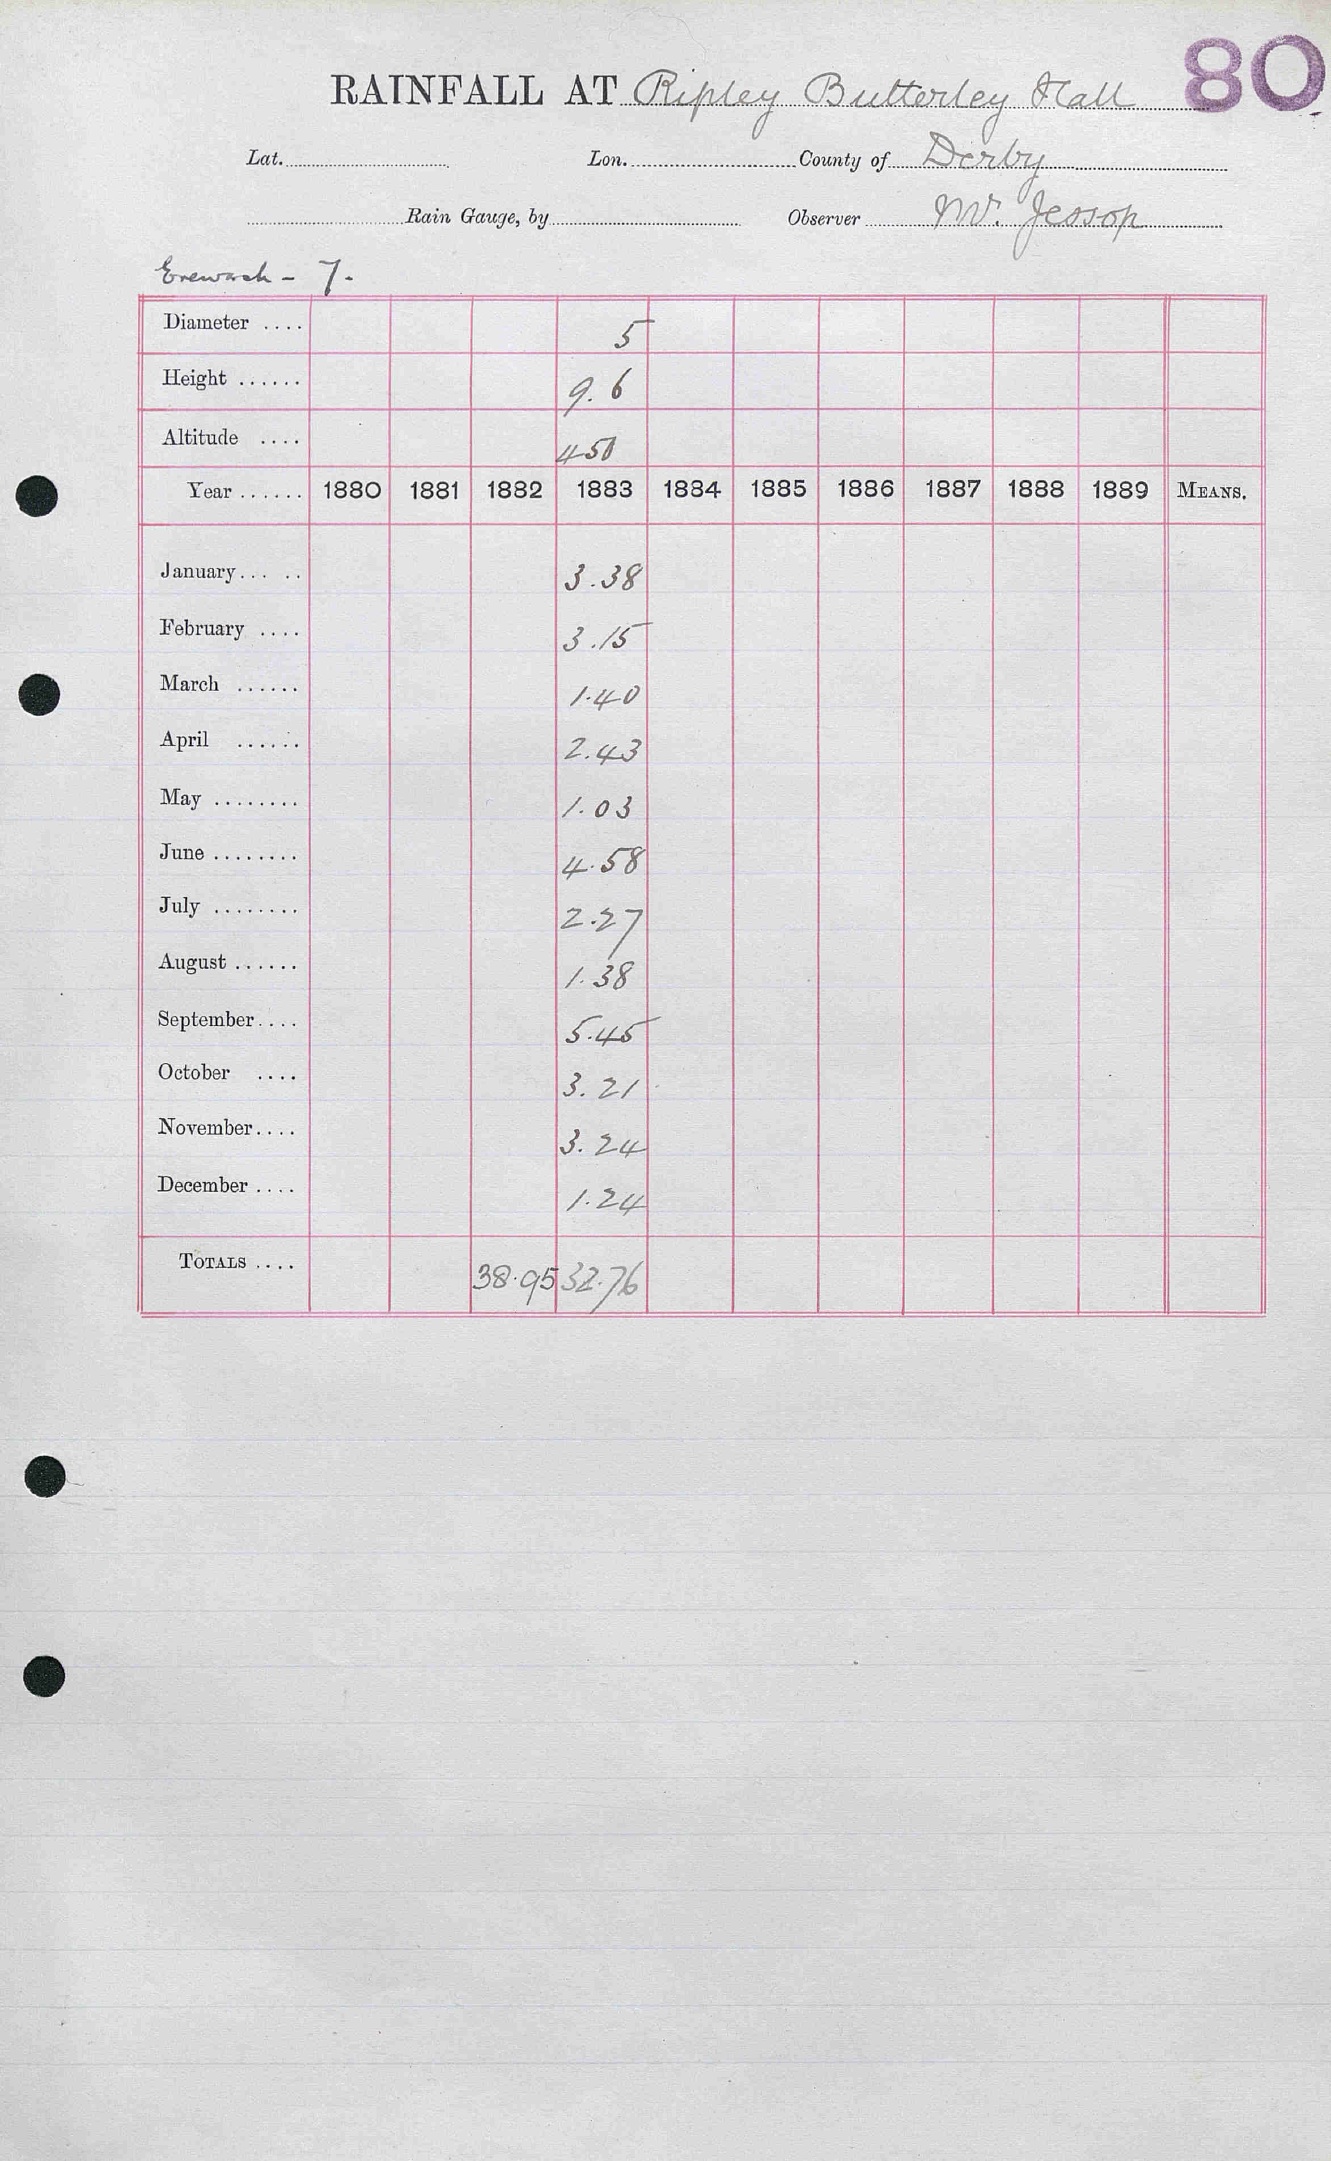 80
RAINFALL AT Ripley Butterley Hall
Lat. Lon. County of Derby
Rain Gauge, by Observer Mr. Jessop
Erewash - 7.
Diameter .... 5
Height ...... 9. 6
Altitude .... 450
Year ...... 1880 1881 1882 1883 1884 1885 1886 1887 1888 1889 MEANS.
January... .. 3.38
February .... 3.15
March ...... 1.40
April ...... 2.43
May ........ 1.03
June ........ 4.58
July ........ 2.27
August ...... 1.38
September.... 5.45
October .... 3.21
November.... 3.24
December .... 1.24
TOTALS .... 38.95 32.76